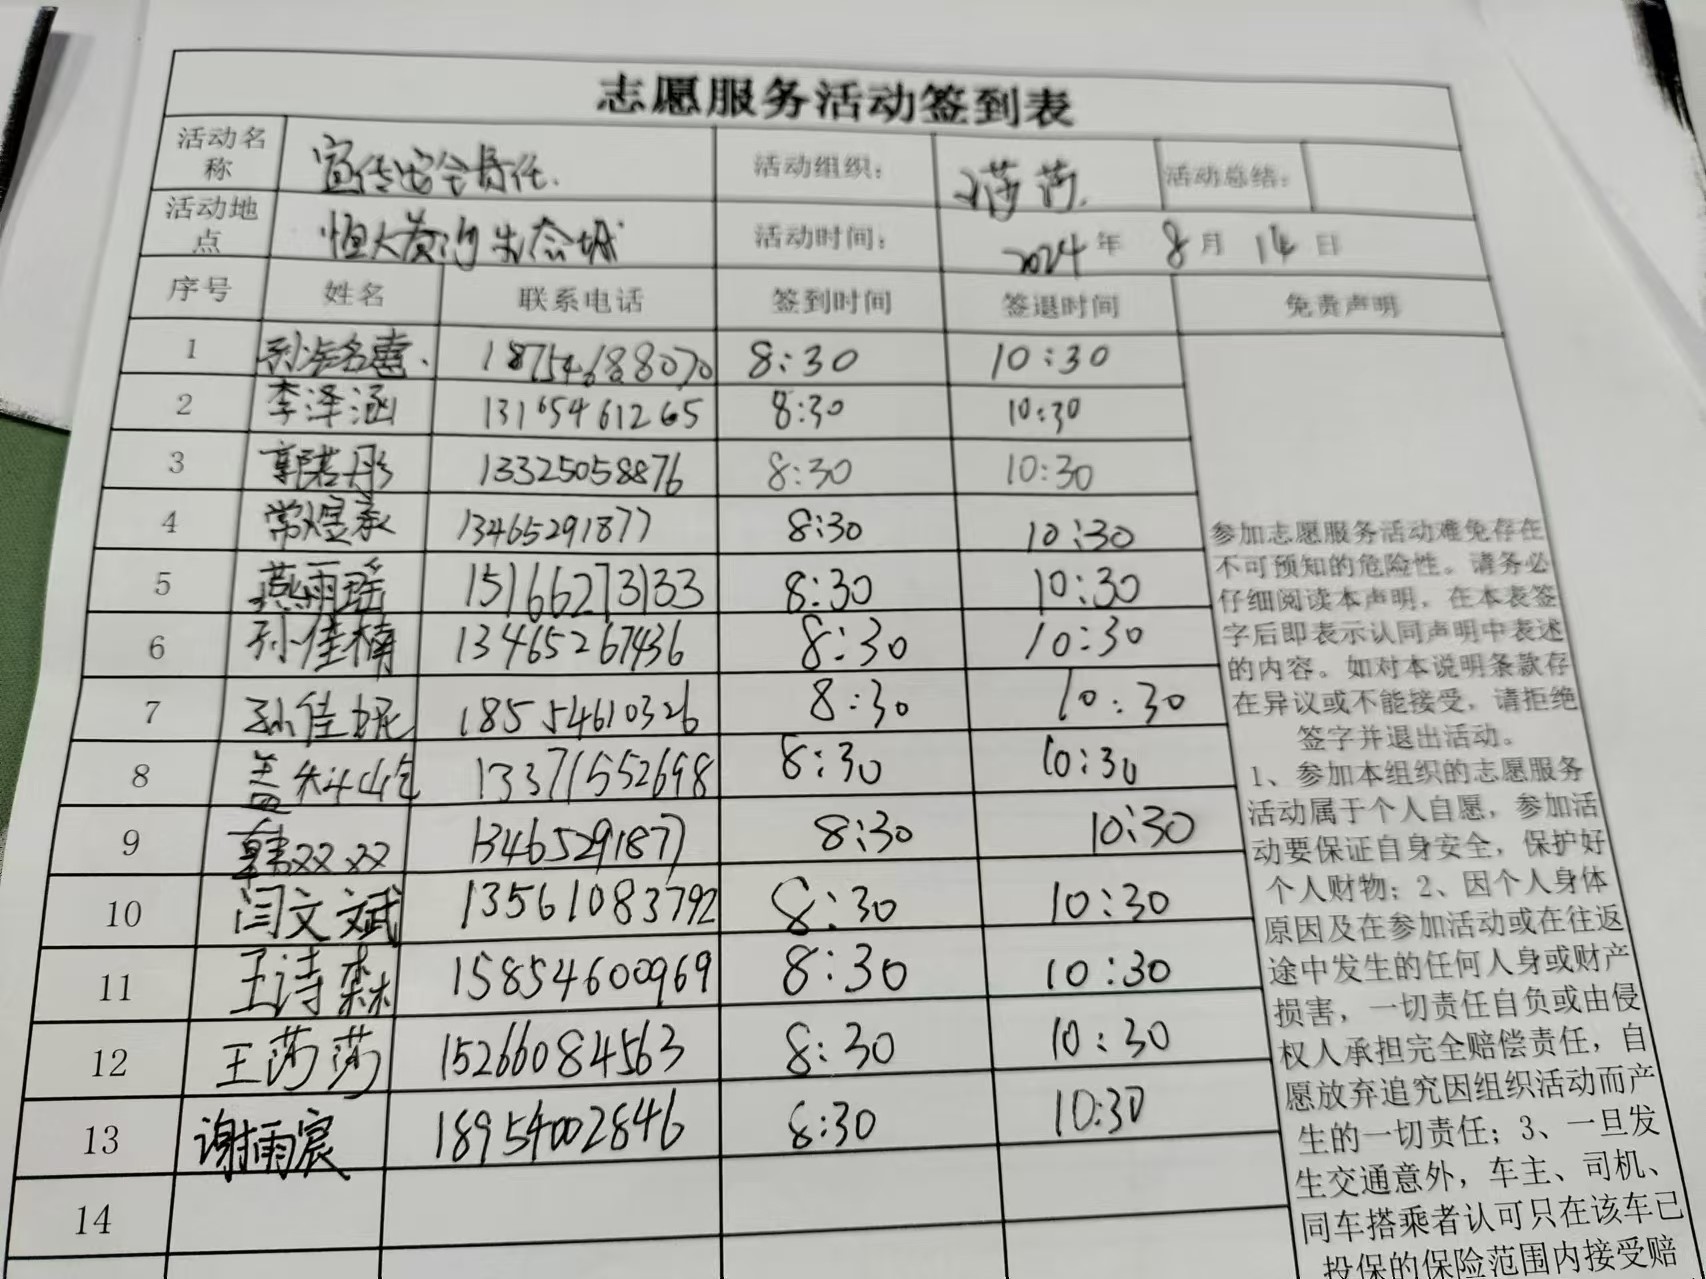 志愿服务活动签到表
活动名称 宣传安全责任. 活动组织: 王莎莎. 活动总结:
活动地点 恒大黄河生态城 活动时间: 2024年 8月 14日
序号 姓名 联系电话 签到时间 签退时间 免责声明
1 18754688070 8:30 10:30
2 李泽涵 13165461265 8:30 10:30
3 郭若彤 13325058876 8:30 10:30
4 常煜承 13465291877 8:30 10:30
5 燕雨瑶 15166273133 8:30 10:30
6 孙佳楠 13465267436 8:30 10:30
7 孙佳妮 18554610326 8:30 10:30
8 盖 13371552698 8:30 10:30
9 韩双双 13465291877 8:30 10:30
10 闫文斌 13561083792 8:30 10:30
11 王诗森 15854600969 8:30 10:30
12 王莎莎 15266084563 8:30 10:30
13 谢雨宸 18954002846 8:30 10:30
14
参加志愿服务活动难免存在
不可预知的危险性。请务必
仔细阅读本声明，在本表签
字后即表示认同声明中表述
的内容。如对本说明条款存
在异议或不能接受，请拒绝
签字并退出活动。
1、参加本组织的志愿服务
活动属于个人自愿，参加活
动要保证自身安全，保护好
个人财物；2、因个人身体
原因及在参加活动或在往返
途中发生的任何人身或财产
损害，一切责任自负或由侵
权人承担完全赔偿责任，自
愿放弃追究因组织活动而产
生的一切责任；3、一旦发
生交通意外，车主、司机、
同车搭乘者认可只在该车已
投保的保险范围内接受赔